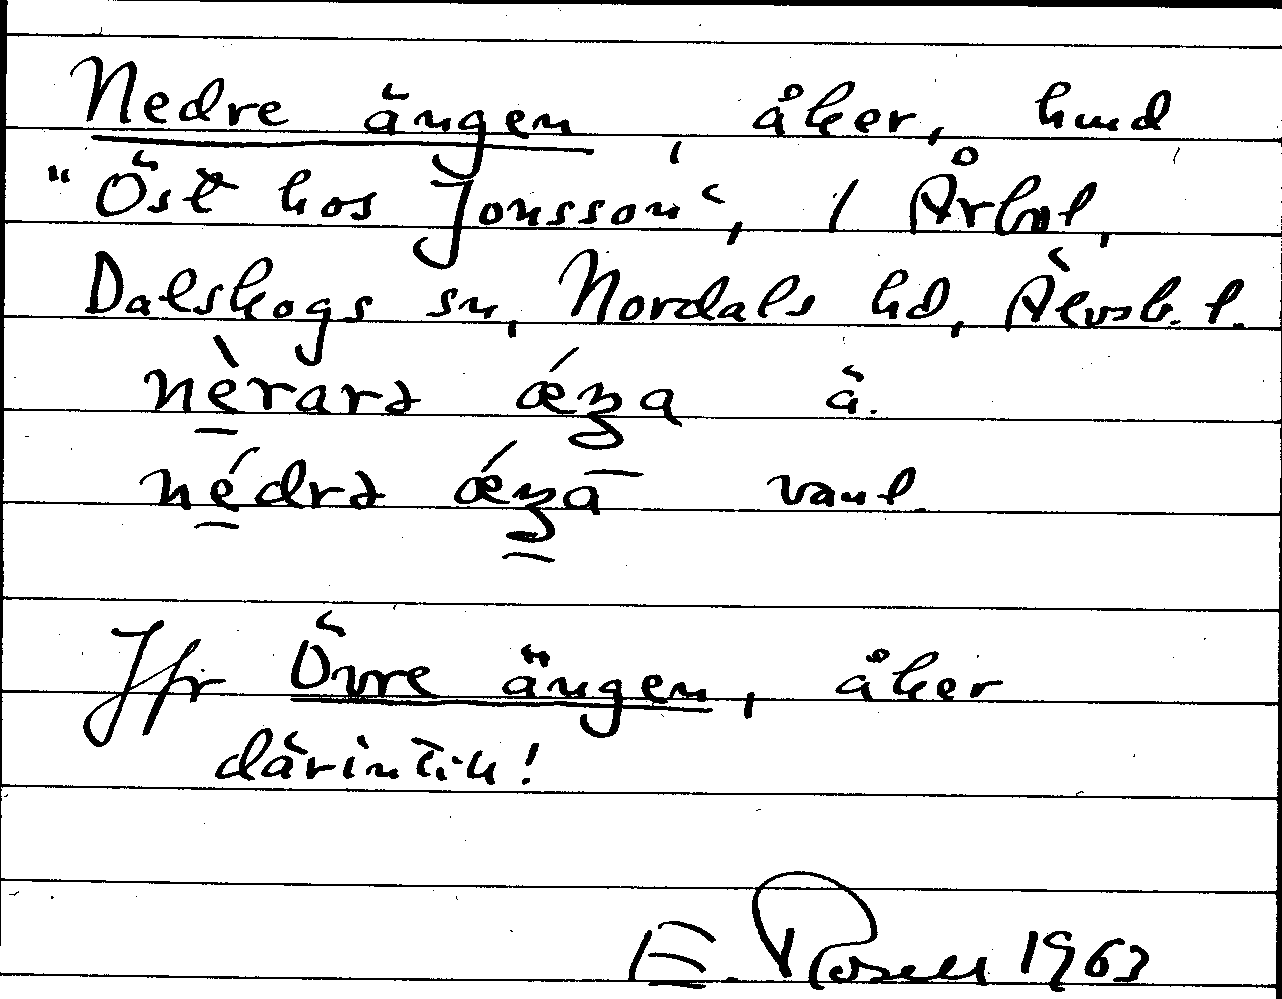 Nedre ängen, åker, hmd
"Öst hos Jonsson", i Årbol,
Dalskogs sn, Nordals hd, Älvsb. l.
nèrarə ǽŋa ä.
nédrə ǽŋa vanl.
Jfr Övre ängen, åker
därintill!
E. Rosell 1963